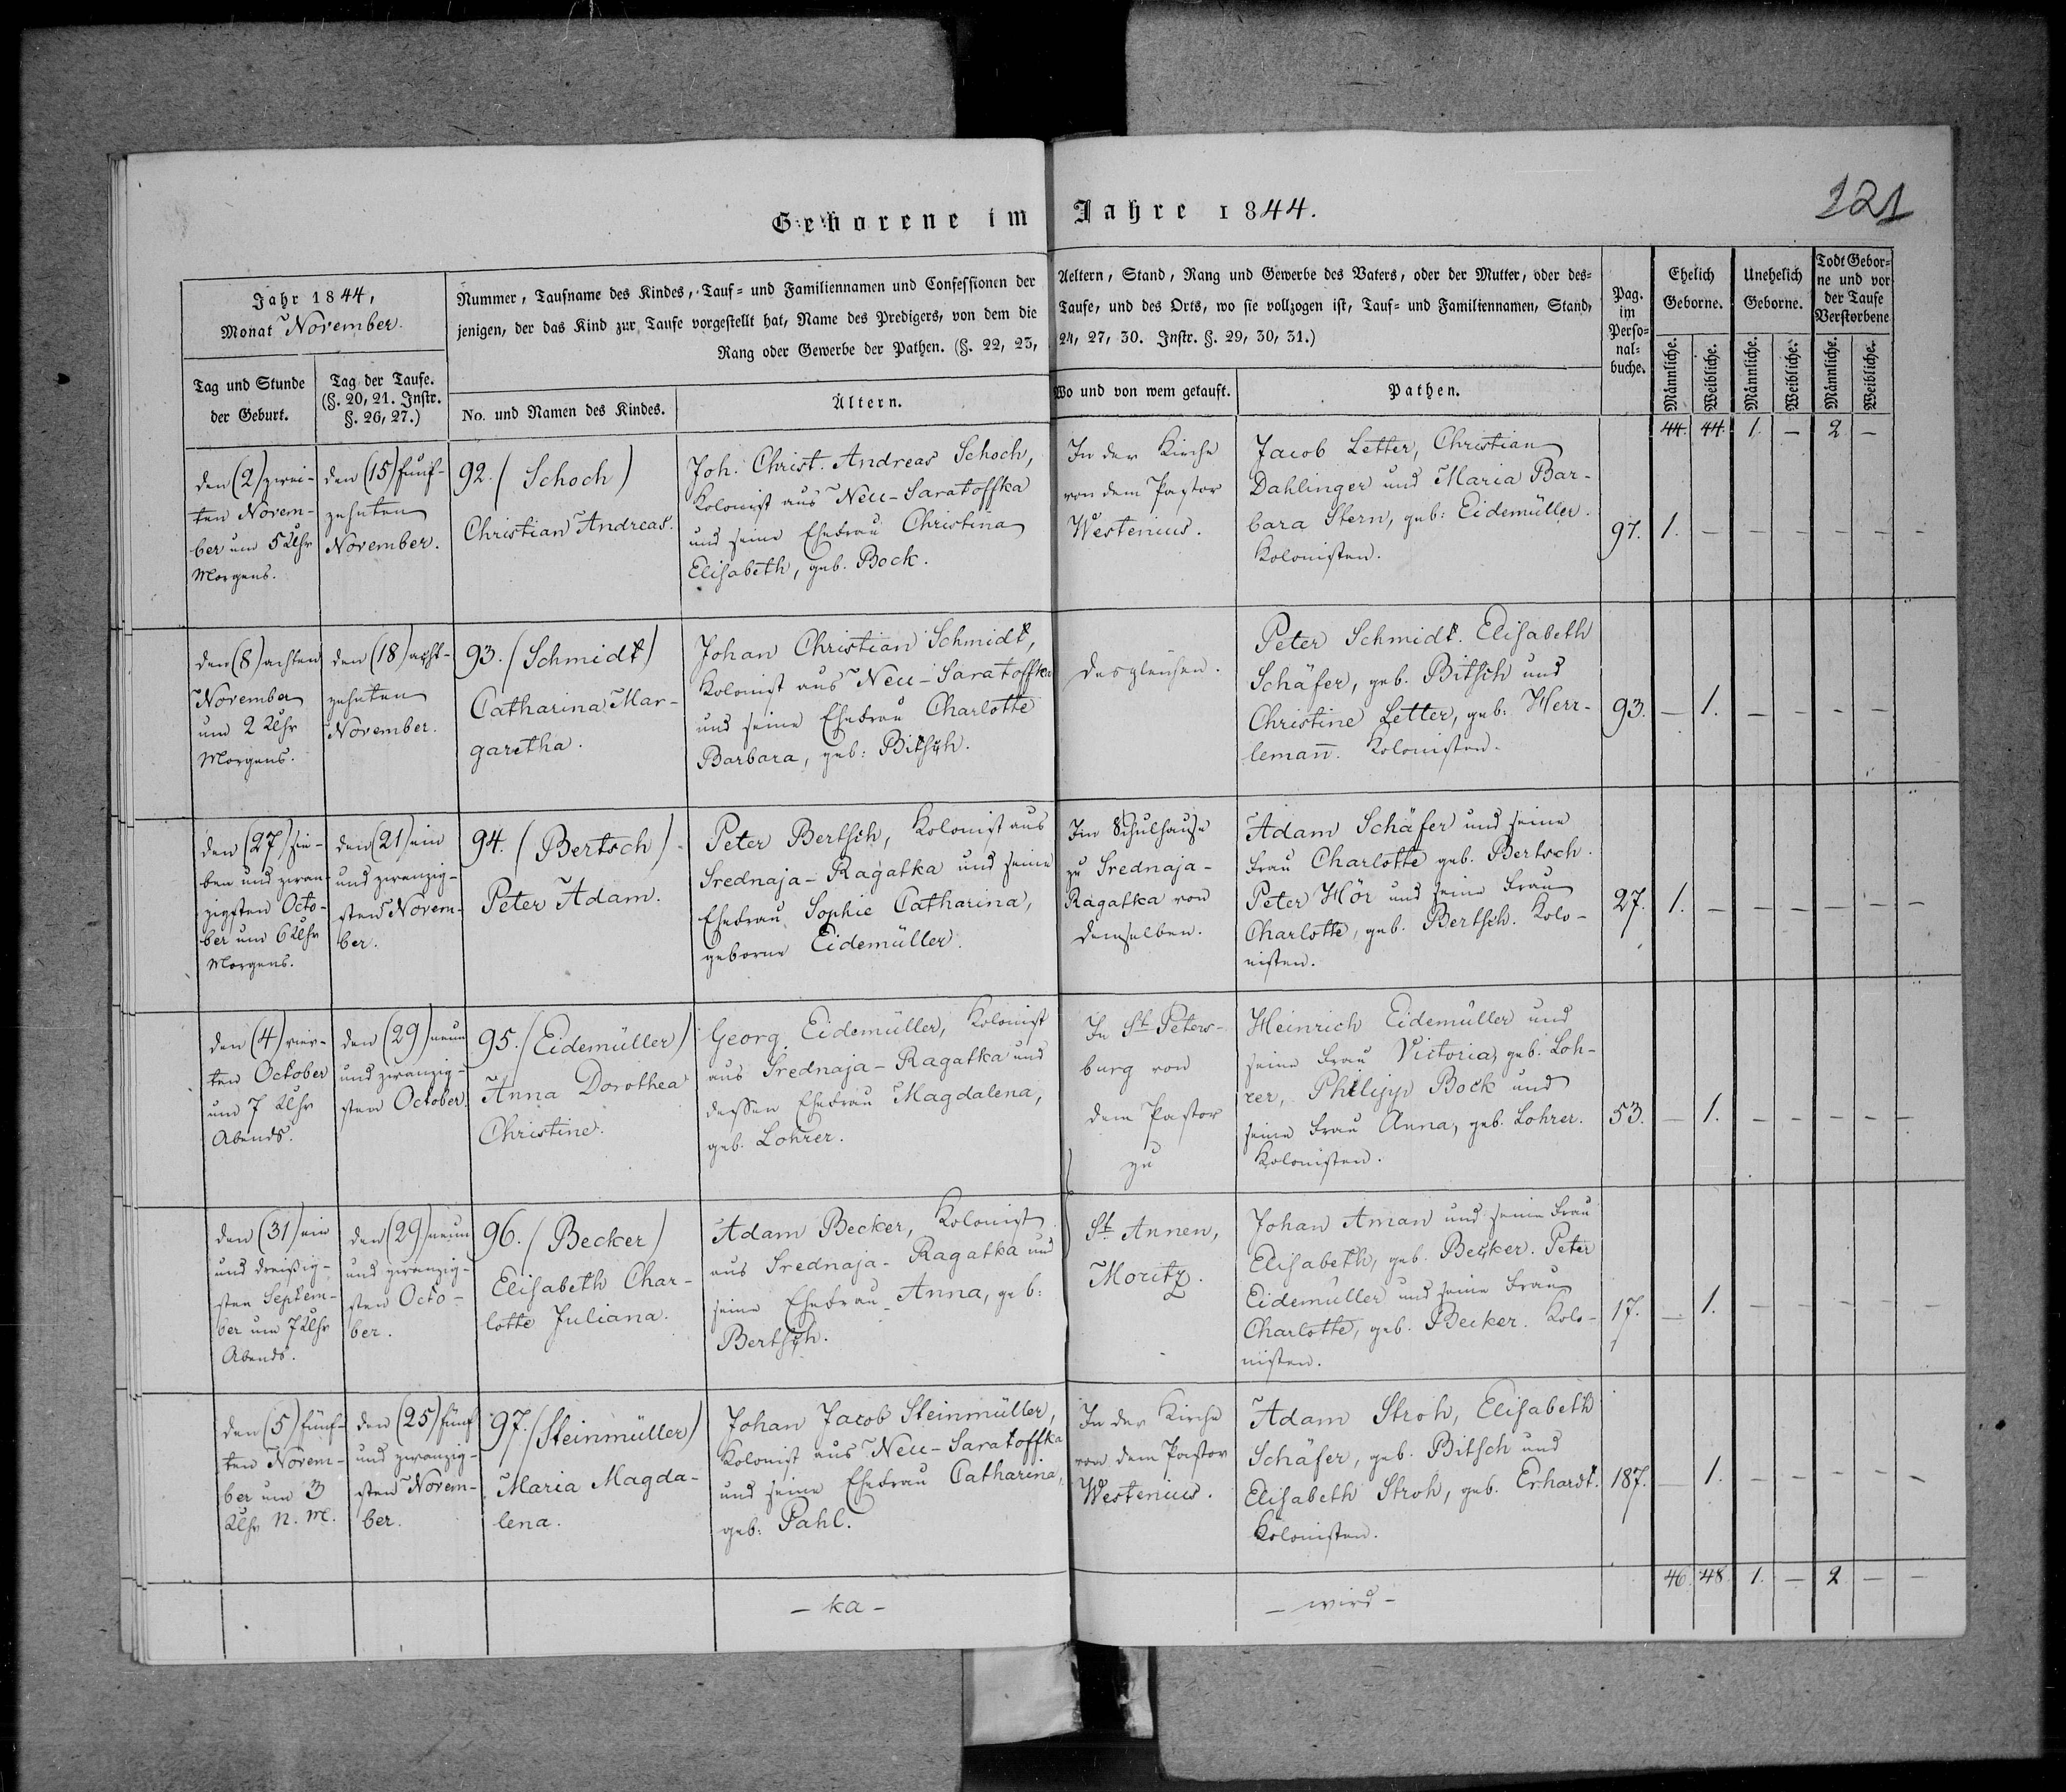 Geborene im Jahre 1844.
121
Jahr 1844,
Monat November.
Nummer, Taufname des Kindes, Tauf= und Familiennamen und Confessionen der
jenigen, der das Kind zur Taufe vorgestellt hat, Name des Predigers, von dem die
Rang oder Gewerbe der Pathen. (§. 22, 23,
Aeltern, Stand, Rang und Gewerbe des Vaters, oder der Mutter, oder des=
Taufe, und des Orts, wo sie vollzogen ist, Tauf= und Familiennamen, Stand,
24, 27, 30. Instr. §. 29, 30, 31.)
Pag.
im
Perso=
nal=
buche.
Ehelich
Geborne.
Unehelich
Geborne.
Todt Gebor=
ne und vor
der Taufe
Verstorbene
Tag und Stunde
der Geburt.
Tag der Taufe.
(§. 20, 21. Instr.
§. 26, 27.)
No. und Namen des Kindes.
Ältern.
Wo und von wem getauft.
Pathen.
Männliche.
Weibliche.
Männliche.
Weibliche.
Männliche.
Weibliche.
44. 44. 1. – 2 –
den (2) zwei-
ten Novem-
ber um 5 Uhr
Morgens.
den (15) fünf-
zehnten
November.
92. (Schoch)
Christian Andreas.
Joh. Christ. Andreas Schoch,
Kolonist aus Neu-Saratoffka
und seine Ehefrau Christina
Elisabeth, geb. Bock.
In der Kirche
von dem Pastor
Westenius.
Jacob Letter, Christian
Dahlinger und Maria Bar-
bara Stern, geb: Eidemüller.
Kolonisten.
97. 1. – – – – – –
den (8) achten
November
um 2 Uhr
Morgens.
den (18) acht-
zehnten
November.
93. (Schmidt)
Catharina Mar-
garetha.
Johan Christian Schmidt,
Kolonist aus Neu-Saratoffka
und seine Ehefrau Charlotte
Barbara, geb: Bitsch.
desgleichen.
Peter Schmidt. Elisabeth
Schäfer, geb. Bitsch und
Christine Letter, geb: Herr-
lemañ. Kolonisten.
93. – 1. – – – –
den (27) sie-
ben und zwan-
zigsten Octo-
ber um 6 Uhr
Morgens.
den (21) ein
und zwanzig-
sten Novem-
ber.
94. (Bertsch)
Peter Adam.
Peter Bertsch, Kolonist aus
Srednaja-Ragatka und seine
Ehefrau Sophie Catharina,
geborne Eidemüller.
Im Schulhause
zu Srednaja-
Ragatka von
demselben.
Adam Schäfer und seine
Frau Charlotte geb. Bertsch.
Peter Hör und seine Frau
Charlotte, geb. Bertsch. Kolo-
nisten.
27. 1. – – – – – –
den (4) vier-
ten October
um 7 Uhr
Abends.
den (29) neun
und zwanzig-
sten October.
95. (Eidemüller)
Anna Dorothea
Christine.
Georg Eidemüller, Kolonist
aus Srednaja-Ragatka und
dessen Ehefrau Magdalena,
geb. Lohrer.
In St Peters-
burg von
dem Pastor
zu
Heinrich Eidemüller und
seine Frau Victoria, geb. Loh-
rer, Philipp Bock und
seine Frau Anna, geb. Lohrer.
Kolonisten.
53. – 1. – – – – –
den (31) ein
und dreißig-
sten Septem-
ber um 7 Uhr
Abends.
den (29) neun
und zwanzig-
sten Octo-
ber.
96. (Becker)
Elisabeth Char-
lotte Juliana.
Adam Becker, Kolonist
aus Srednaja-Ragatka und
seine Ehefrau Anna, geb:
Bertsch.
St Annen,
Moritz.
Johan Aman und seine Frau
Elisabeth, geb. Becker. Peter
Eidemüller und seine Frau
Charlotte, geb. Becker. Kolo-
nisten.
17. – 1. – – – – –
den (5) fünf-
ten Novem-
ber um 3
Uhr N. M.
den (25) fünf
und zwanzig-
sten Novem-
ber.
97. (Steinmüller)
Maria Magda-
lena.
Johan Jacob Steinmüller,
Kolonist aus Neu-Saratoffka
und seine Ehefrau Catharina,
geb: Pahl.
In der Kirche
von dem Pastor
Westenius.
Adam Stroh, Elisabeth
Schäfer, geb. Bitsch und
Elisabeth Stroh, geb. Erhardt.
Kolonisten.
187. – 1. – – – – –
46. 48. 1. – 2. – –
– ka –
– wird –